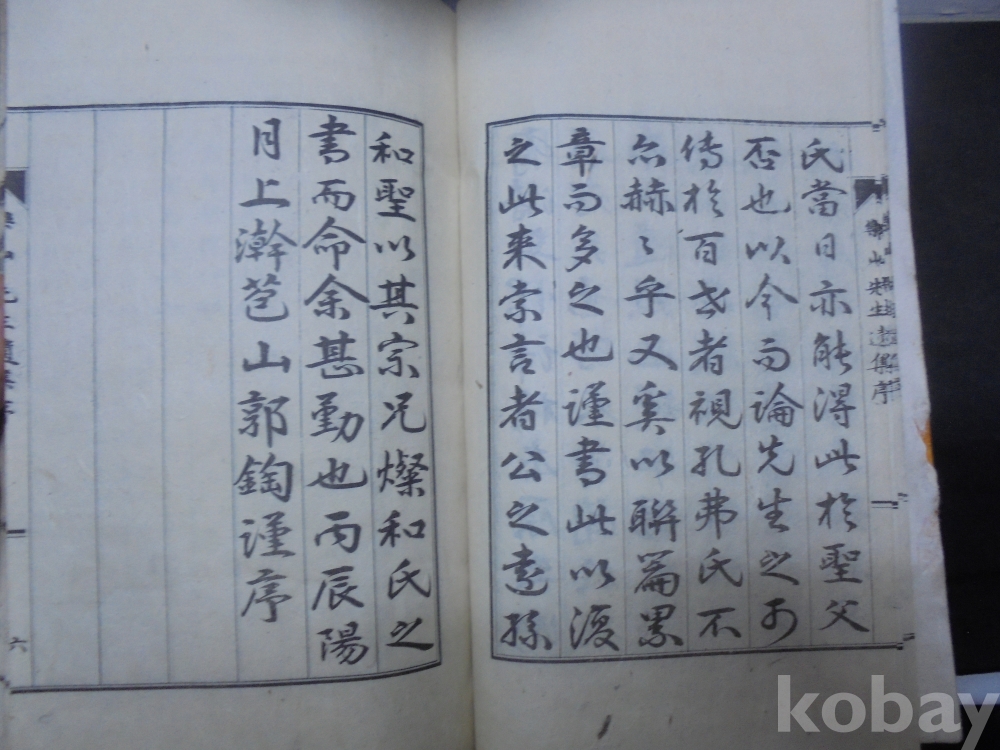 氏當日亦能得此於聖父
否也以今而論先生之可
傳於百世者視孔弗氏不
亦赫〻乎又奚以聯篇累
章而多之也謹書此以復
之此来索言者公之遠孫
和聖以其宗兄燦和氏之
書而命余甚勤也丙辰陽
月上澣苞山郭鋾謹序
樂山先生遺集序
六
kobay